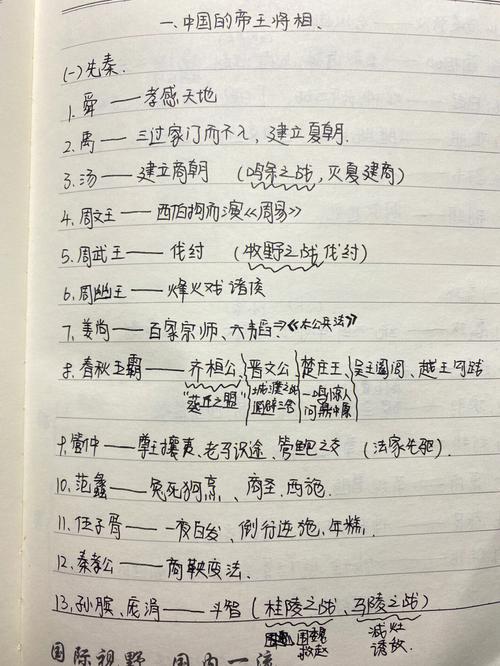 一、中国的帝王将相.
(一)先秦.
1.舜——孝感天地
2.禹——三过家门而不入,建立夏朝.
3.汤——建立商朝 (鸣条之战,灭夏建商)
4.周文王——西伯拘而演《周易》
5.周武王——伐纣 (牧野之战伐纣)
6.周幽王——烽火戏诸侯
7.姜尚——百家宗师、六韬→《太公兵法》
8.春秋五霸——齐桓公、晋文公、楚庄王、吴王阖闾、越王勾践
"葵丘之盟" 城濮之战 退避三舍 一鸣惊人 问鼎中原
9.管仲——尊王攘夷、老马识途、管鲍之交 (法家先驱)
10.范蠡——兔死狗烹、商圣、西施.
11.伍子胥——一夜白发、倒行逆施、年糕.
12.秦孝公——商鞅变法.
13.孙膑、庞涓——斗智 (桂陵之战、马陵之战)
围魏救赵 减灶诱敌
国际视野 国内一流